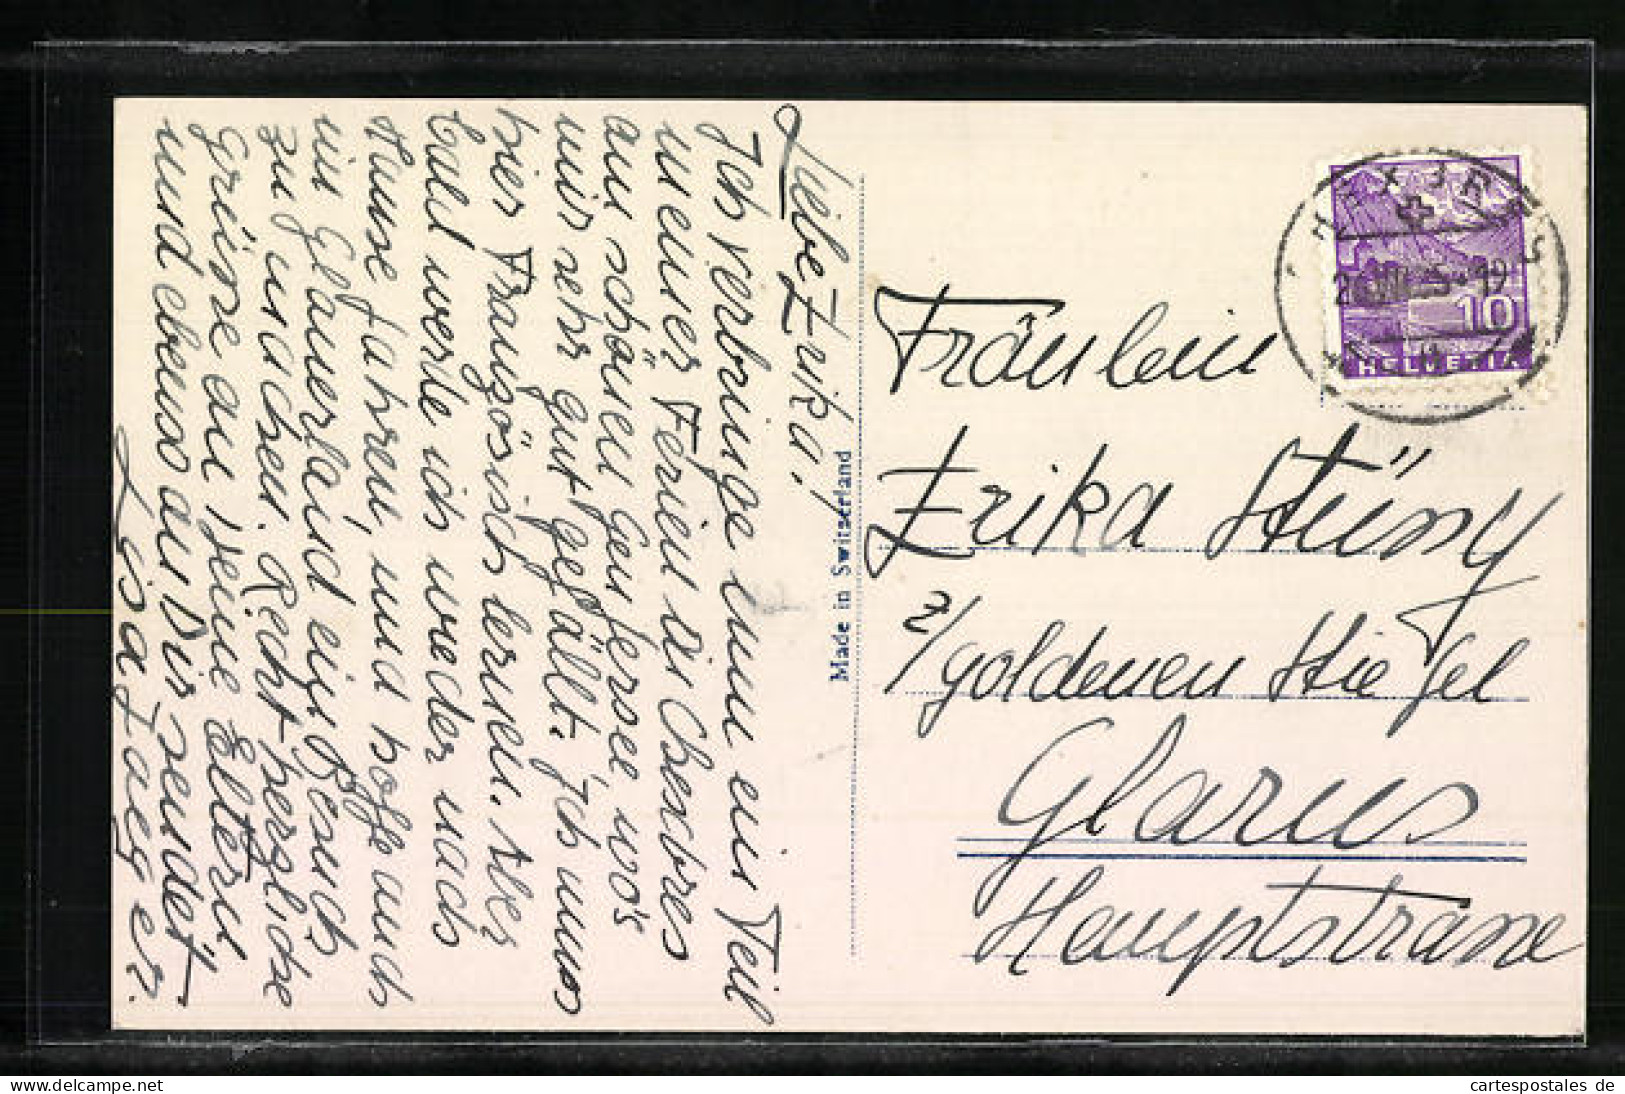 Liebe Erika!
Ich verbringe nun ein Teil
meiner Ferien in Chexbres
am schönen Genfersee, wo's
mir sehr gut gefällt. Ich muss
hier Französisch lernen. Aber
bald werde ich wieder nach
Hause fahren, und hoffe auch
im Glarnerland ein Besuch
zu machen. Recht herzliche
Grüsse an Deine Eltern
und ebenso an Dir sendet
Made in Switzerland
Fräulein
Erika Stüssy
z/goldenen Stiefel
Glarus
Hauptstrasse
10
HELVETIA
cartespostales de